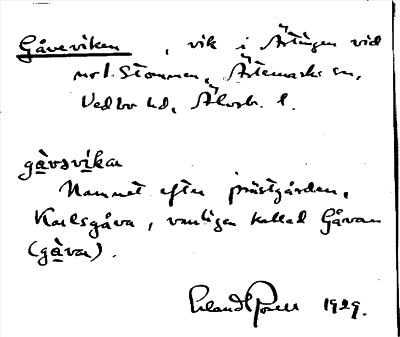 Gåveviken, vik i Ärtingen vid
norl. Stommen, Ärtemarks sn,
Vedbo hd, Älvsb. l.
gåvəvikа
Namnet efter prästgården,
Karlsgåva, vanligen kallad Gåvan
(gåva).
Erland Rosell 1929.